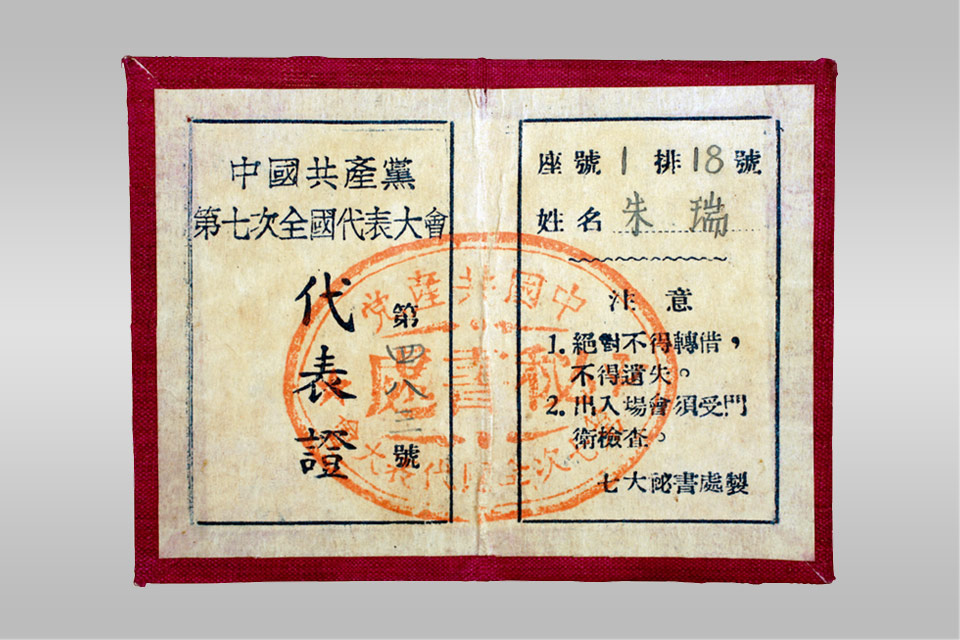 中國共產黨
第七次全國代表大會
代表證
第四八三號
座號1排18號
姓名 朱瑞
注意
1. 絕對不得轉借，
不得遺失。
2. 出入場會須受門
衛檢查。
七大祕書處製
中国共産党
書處